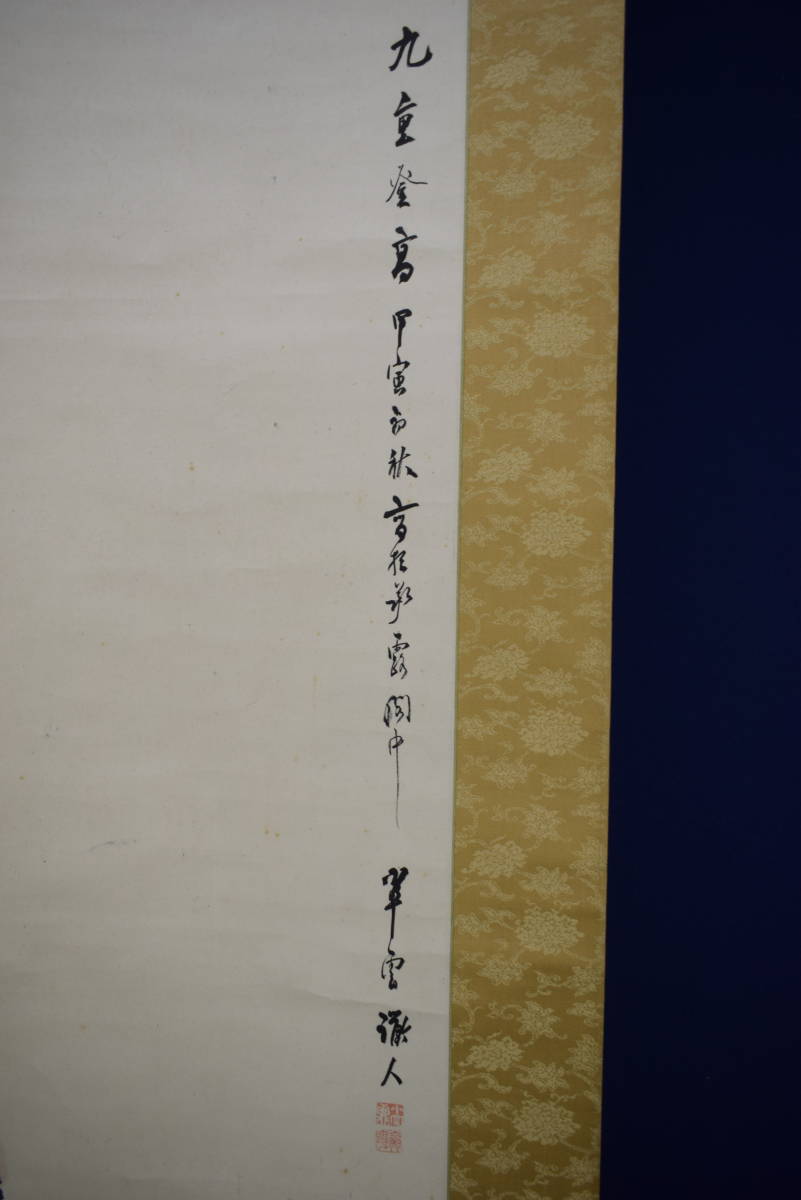 九重登高 甲寅初秋寫於承露閣中 翠雲散人